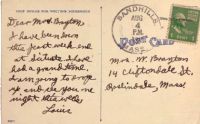 THIS SPACE FOR WRITING MESSAGES
Dear Mrs. Brayton
I have been down
the past week end
at Scituate. I have
had a grand time.
I am going to drop
up and see you one
night this week.
Lois
SANDHILLS
AUG
4
PM
MASS.
POST CARD
Mrs. W. Brayton
14 Cliftondale St.
Roslindale, Mass.